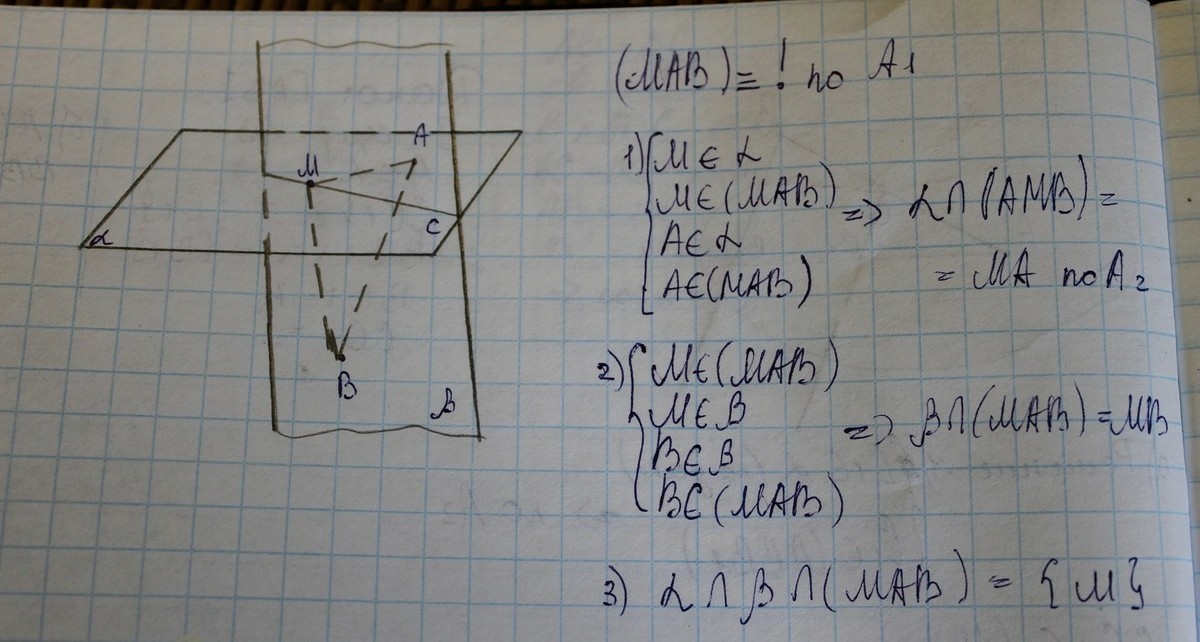 (MAB) = ! по A1
1) { M ∈ α
M ∈ (MAB)
A ∈ α
A ∈ (MAB)
=> α ∩ (AMB) =
= MA по A2
2) { M ∈ (MAB)
M ∈ β
B ∈ β
B ∈ (MAB)
=> β ∩ (MAB) = MB
3) α ∩ β ∩ (MAB) = {M}
A
M
C
α
B
β